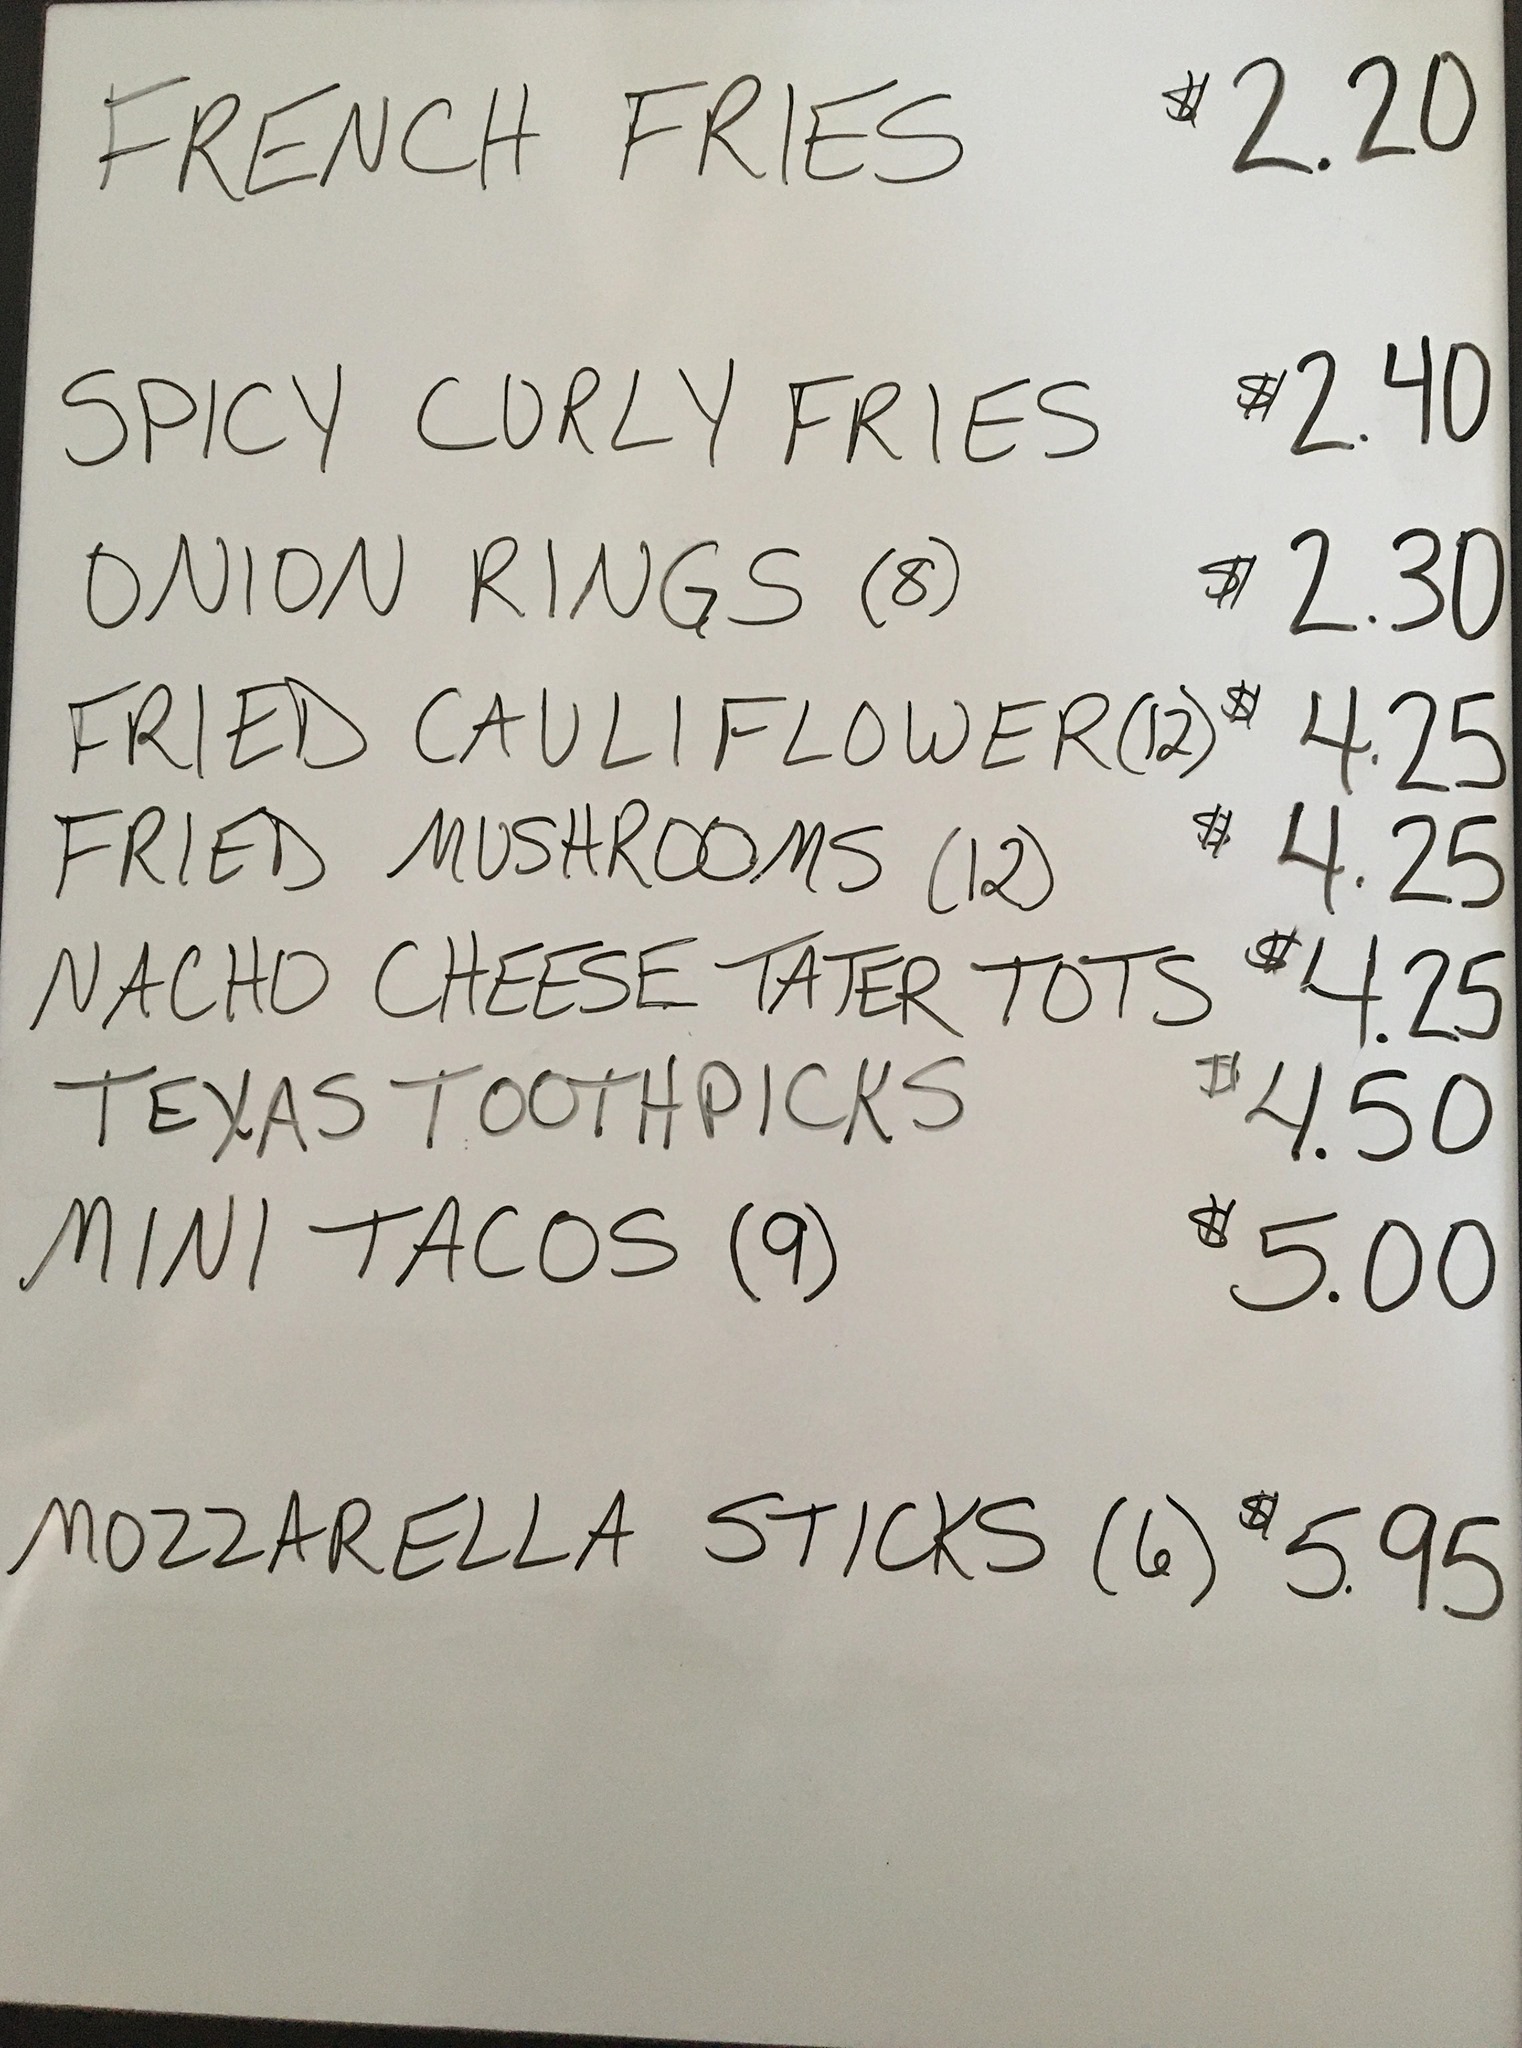 FRENCH FRIES $2.20
SPICY CURLY FRIES $2.40
ONION RINGS (8) $2.30
FRIED CAULIFLOWER (12) $4.25
FRIED MUSHROOMS (12) $4.25
NACHO CHEESE TATER TOTS $4.25
TEXAS TOOTHPICKS $4.50
MINI TACOS (9) $5.00
MOZZARELLA STICKS (6) $5.95